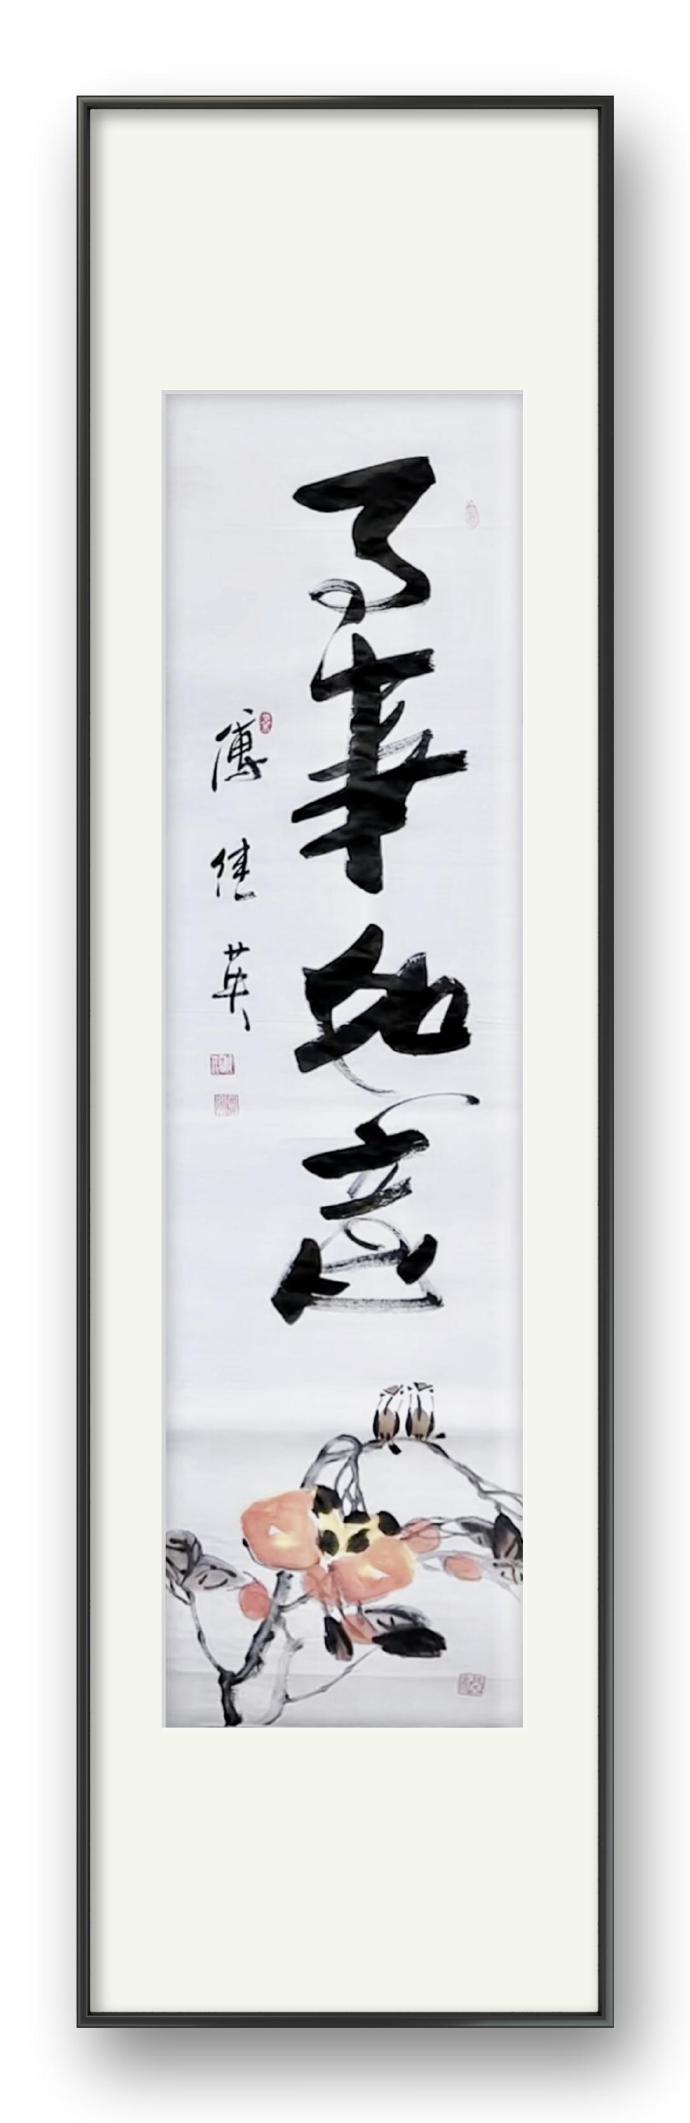 万事如意
傅佳英